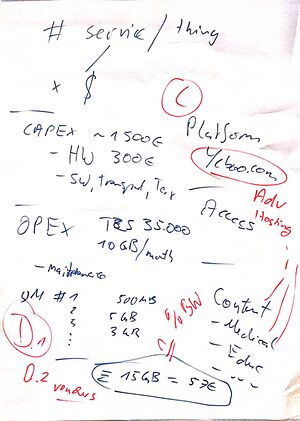 # service / thing
x $
C
CAPEX ~ 1500€
- HW 300€
- SW, transport, Tax
Platform
Yeboo.com
Adv
Hosting
Access
OPEX TZS 35.000
10 GB/month
- maintenance
# 1 500 MB
2 5 GB
3 3 GB
% BW
Content
- Medical
- Educ
D.1
D.2 vendors
Σ 15 GB = 57€